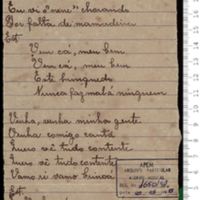 Eu vi o "nenê" chorando
Por falta de mamadeira
Est.
Vem cá, meu bem
Vem cá, meu bem
Este brinquedo
Nunca faz mal à ninguem
Venha, venha minha gente
Venha comigo cantá
Quero vê tudo contente
Quero vê tudo contente
Vamo si vamo brincá
Est.
APEM
ARQUIVO PARTICULAR